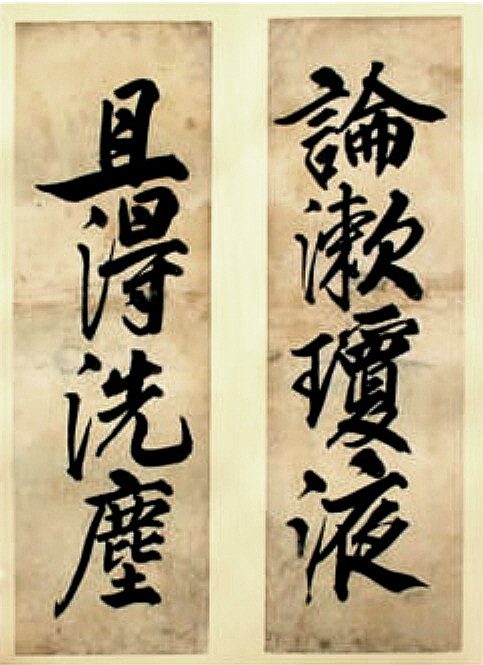 論漱瓊液
且得洗塵